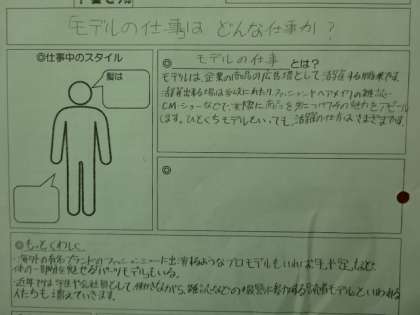 「モデルの仕事」は どんな仕事か?
◎仕事中のスタイル
髪は
◎ モデルの仕事 とは?
モデルは、企業の商品の広告塔として活躍する職業です。
活躍出来る場は多岐にわたり、ファッションやヘアメイクの雑誌、
CM・ショーなどで、実際に商品を身につけてその魅力をアピール
します。ひとくちにモデルといっても、活躍の仕方はさまざまです。
◎
◎もっとくわしく
・海外の有名ブランドのファッションショーに出るようなプロモデルもいれば、手や足など、
体の一部分を見せるパーツモデルもいる。
・近年では学生や会社員として働きながら、雑誌などの
人たちも増えていきます。